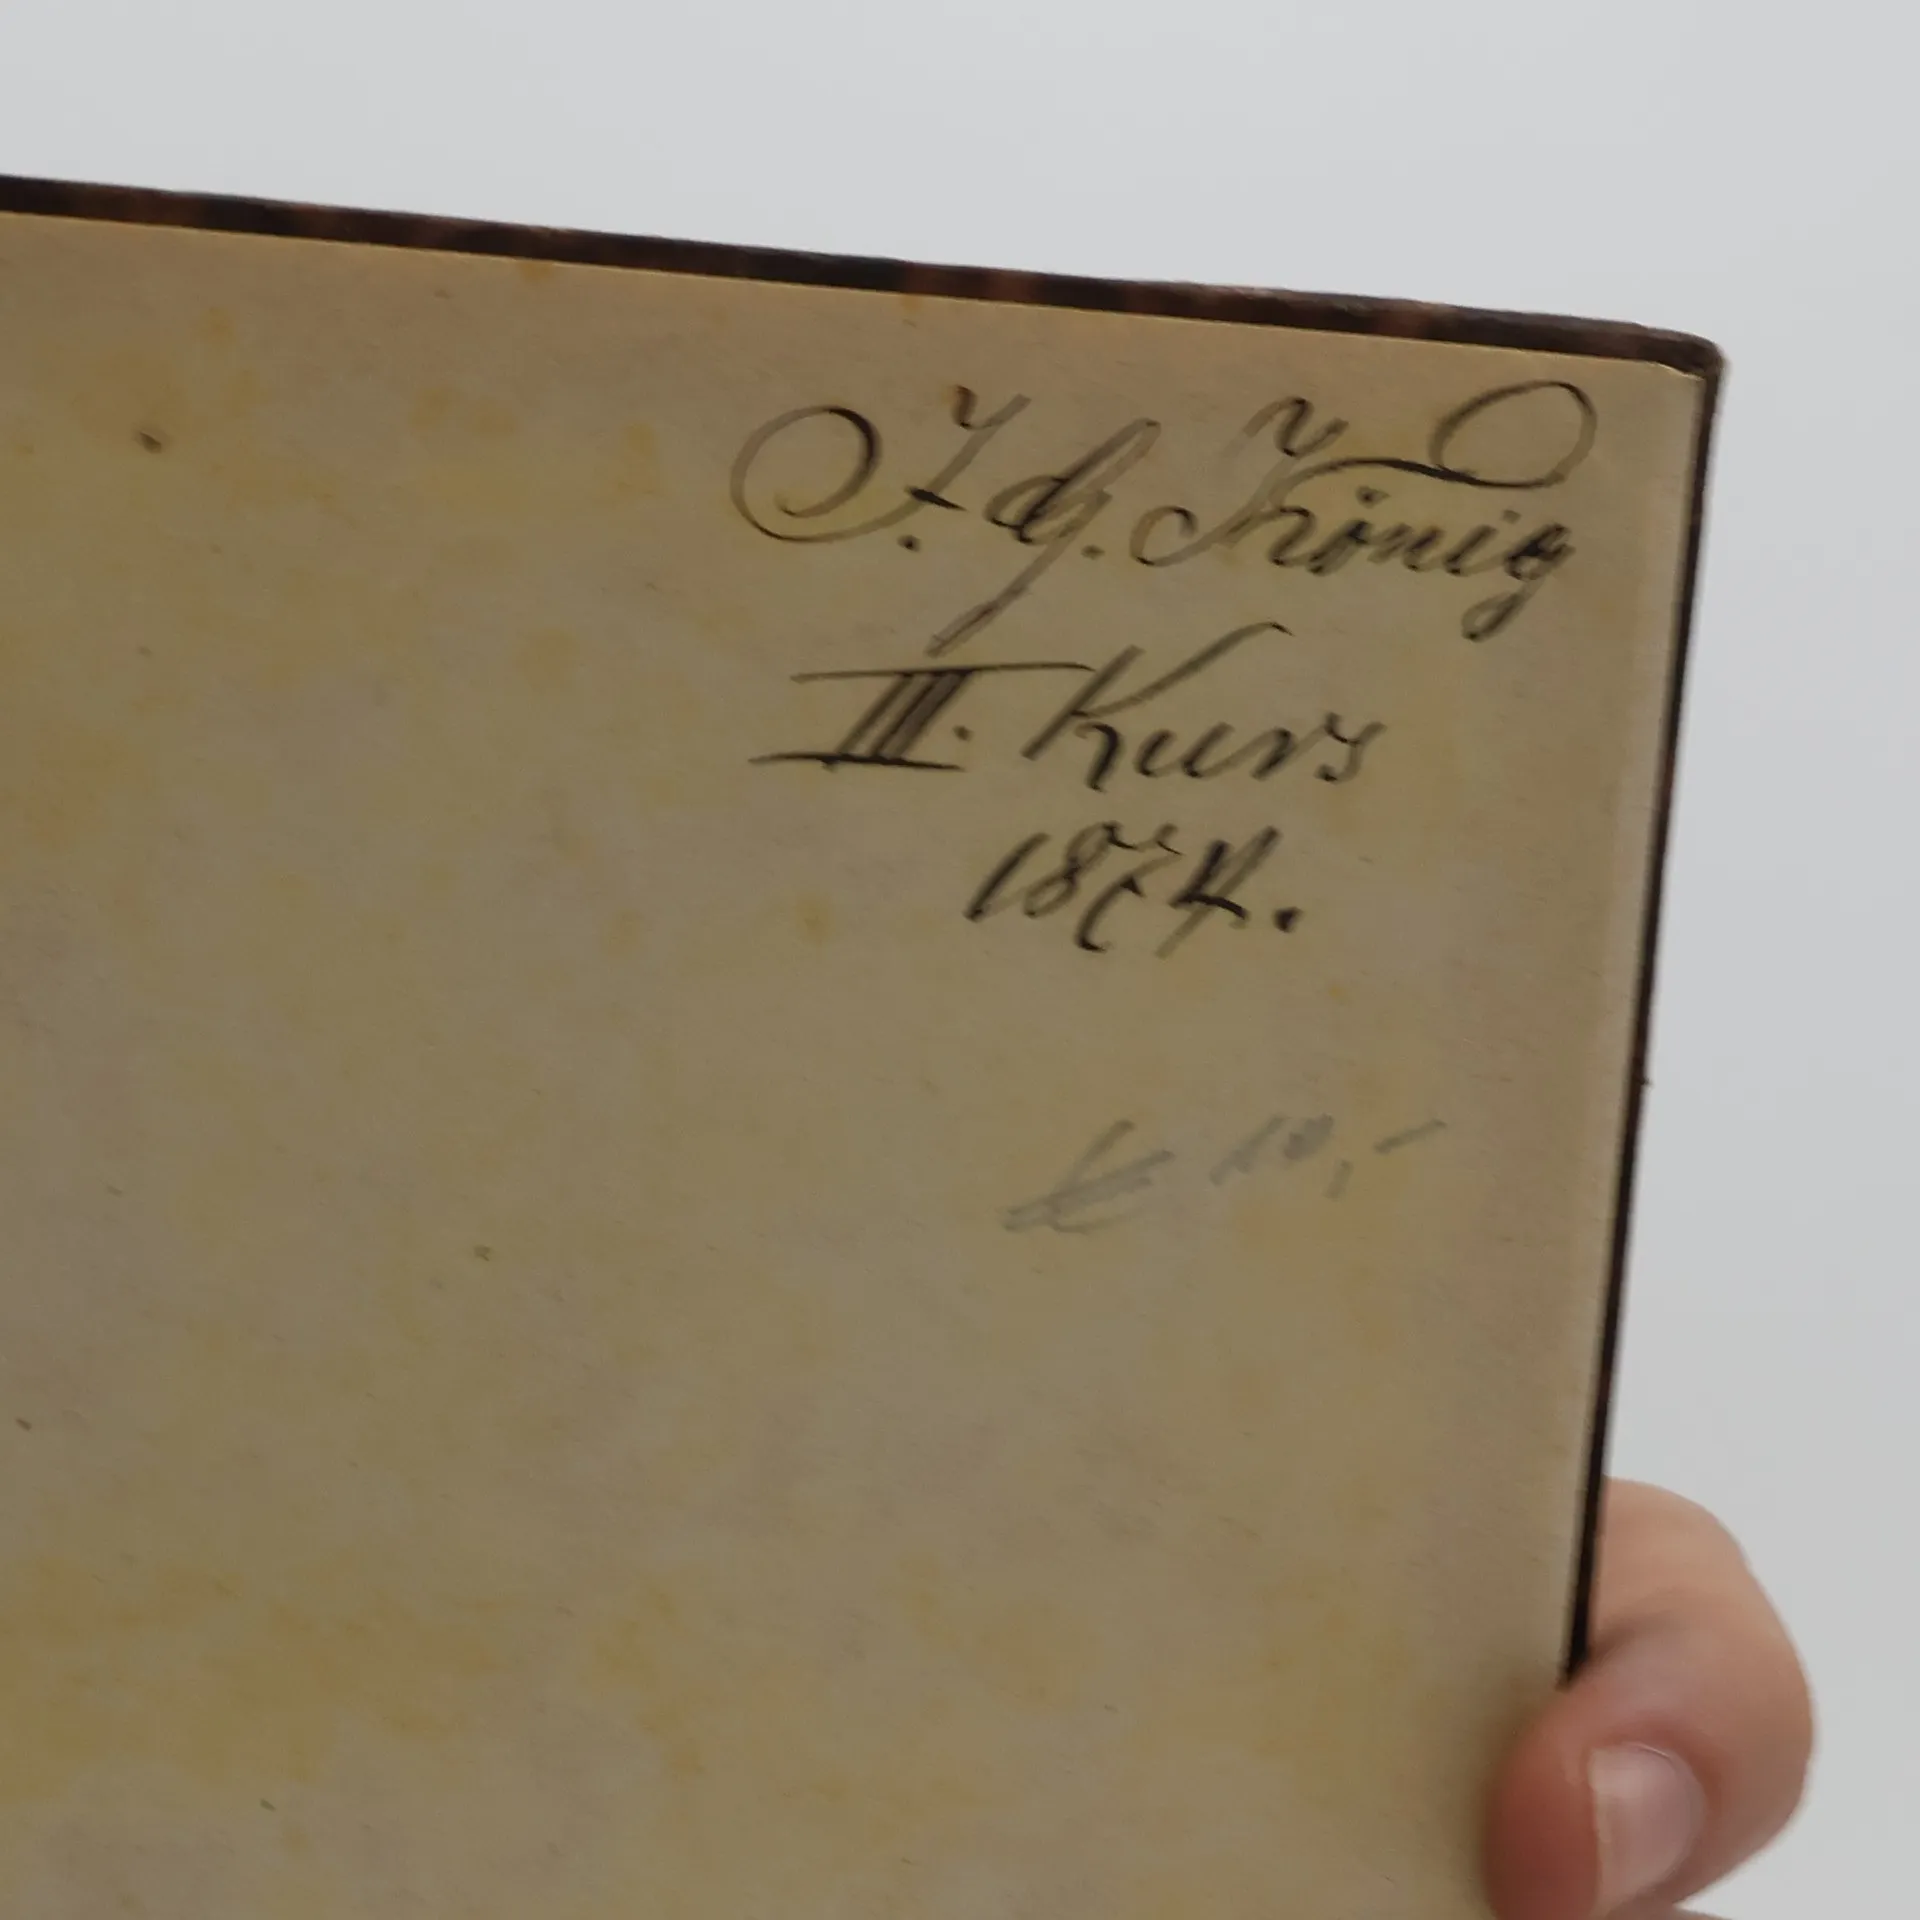 J. G. König
III. Kurs
1874.
10,-